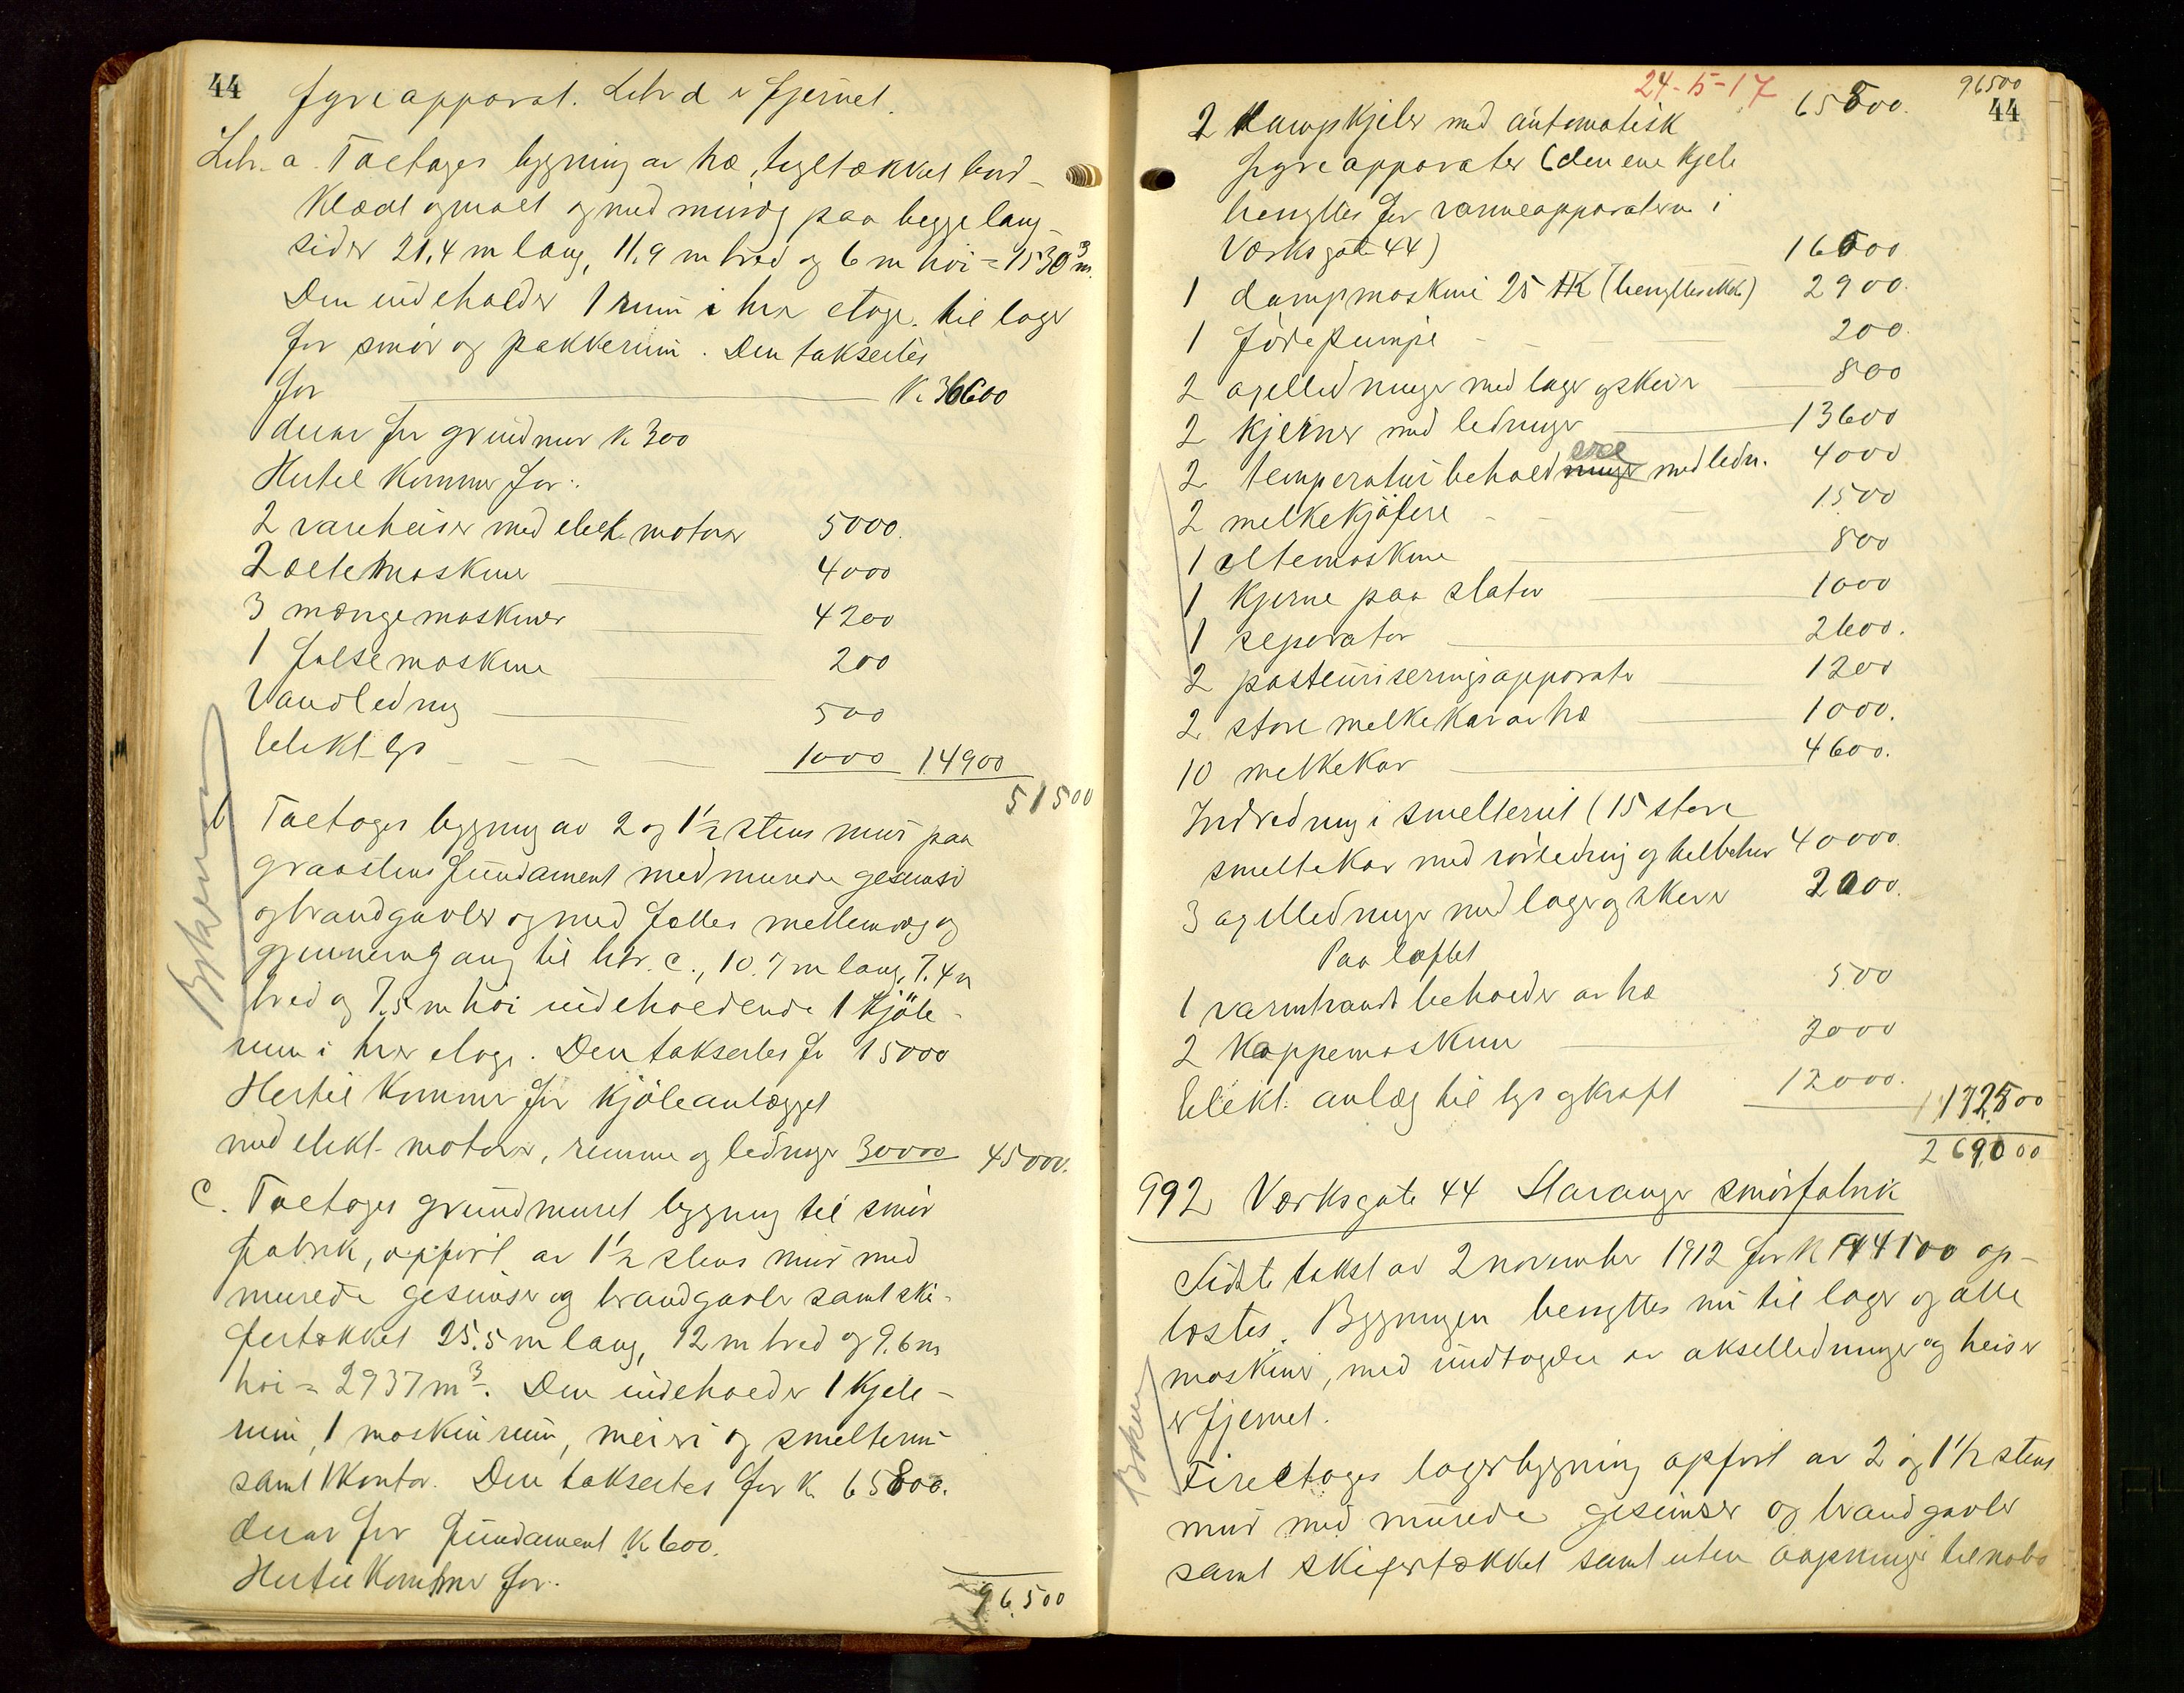 44
fyreapparat. Litr d er fjernet.
Litr. a. Toetages bygning av træ, tegltækket bord-
klædt og malt og med murvæg paa begge lang-
sider 21,4 m lang, 11,9 m bred og 6 m høi = 1530 m³.
Den indeholder 1 rum i hver etage til lager
for smør og pakkerum. Den takseites
for K. 36600
derav for grundmur K 300
Hertil kommer for:
2 vareheiser med elekt. motorer 5000.
2 æltemaskiner 4000
3 mængemaskiner 4200
1 falsemaskine 200
Vandledning 500
Elekt. lys 1000 14900
51500
b Toetages bygning av 2 og 1½ stens mur paa
graastens fundament med murede gesimser
og brandgavler og med fælles mellemvæg og
gjennemgang til litr. c., 10.7 m lang, 7.4 m
bred og 7.5 m høi indeholdende 1 kjøle-
rum i hver etage. Den takseites for 15000
Hertil kommer for kjøleanlægget
med elekt. motorer, remme og ledninger 30000 45000.
c. Toetages grundmuret bygning til smør
fabrik, opført av 1½ stens mur med
murede gesimser og brandgavler samt ski-
fertækket 25.5 m lang, 12 m bred og 9.6 m
høi = 2937 m³. Den indeholder 1 kjele-
rum, 1 maskinrum, meieri og smelterum
samt kontor. Den takseites for K. 65800.
derav for fundament K 600.
Hertil kommer for.
96.500
24-5-17
96500
44
65800.
2 dampkjeler med automatisk
fyreapparater (den ene kjele
benyttes for varmeapparaterne i
Værksgate 44) 16500
1 dampmaskine 25 HK (benyttes ikke) 2900.
1 fødepumpe 200.
2 axelledninger med lager og skiver 800
2 kjerner med ledninger 13600
2 temperaturbeholdere med ledn. 4000
2 melkekjølere 1500
1 eltemaskine 800
1 kjerne paa stativ 1000
1 seperator 2600.
2 pasteuriseringsapparater 1200
2 store melkekar av træ 1000.
10 melkekar 4600.
Indredning i smelteriet (15 store
smeltekar med rørledning og tilbehør 40000.
3 axelledninger med lager og skiver 2000.
Paa loftet
1 varmtvandsbeholder av træ 500
2 kappemaskiner 2000
Elekt. anlæg til lys og kraft 12000. 172500
269000
992 Værksgate 44 Stavanger smørfabrik
Sidste takst av 2 november 1912 for K 144100 op-
læstes. Bygningen benyttes nu til lager og alle
maskiner, med undtagelse av akselledninger og heiser
er fjernet.
Fireetages lagerbygning opført av 2 og 1½ stens
mur med murede gesimser og brandgavler
samt skifertækket samt uten aapninger til nabo